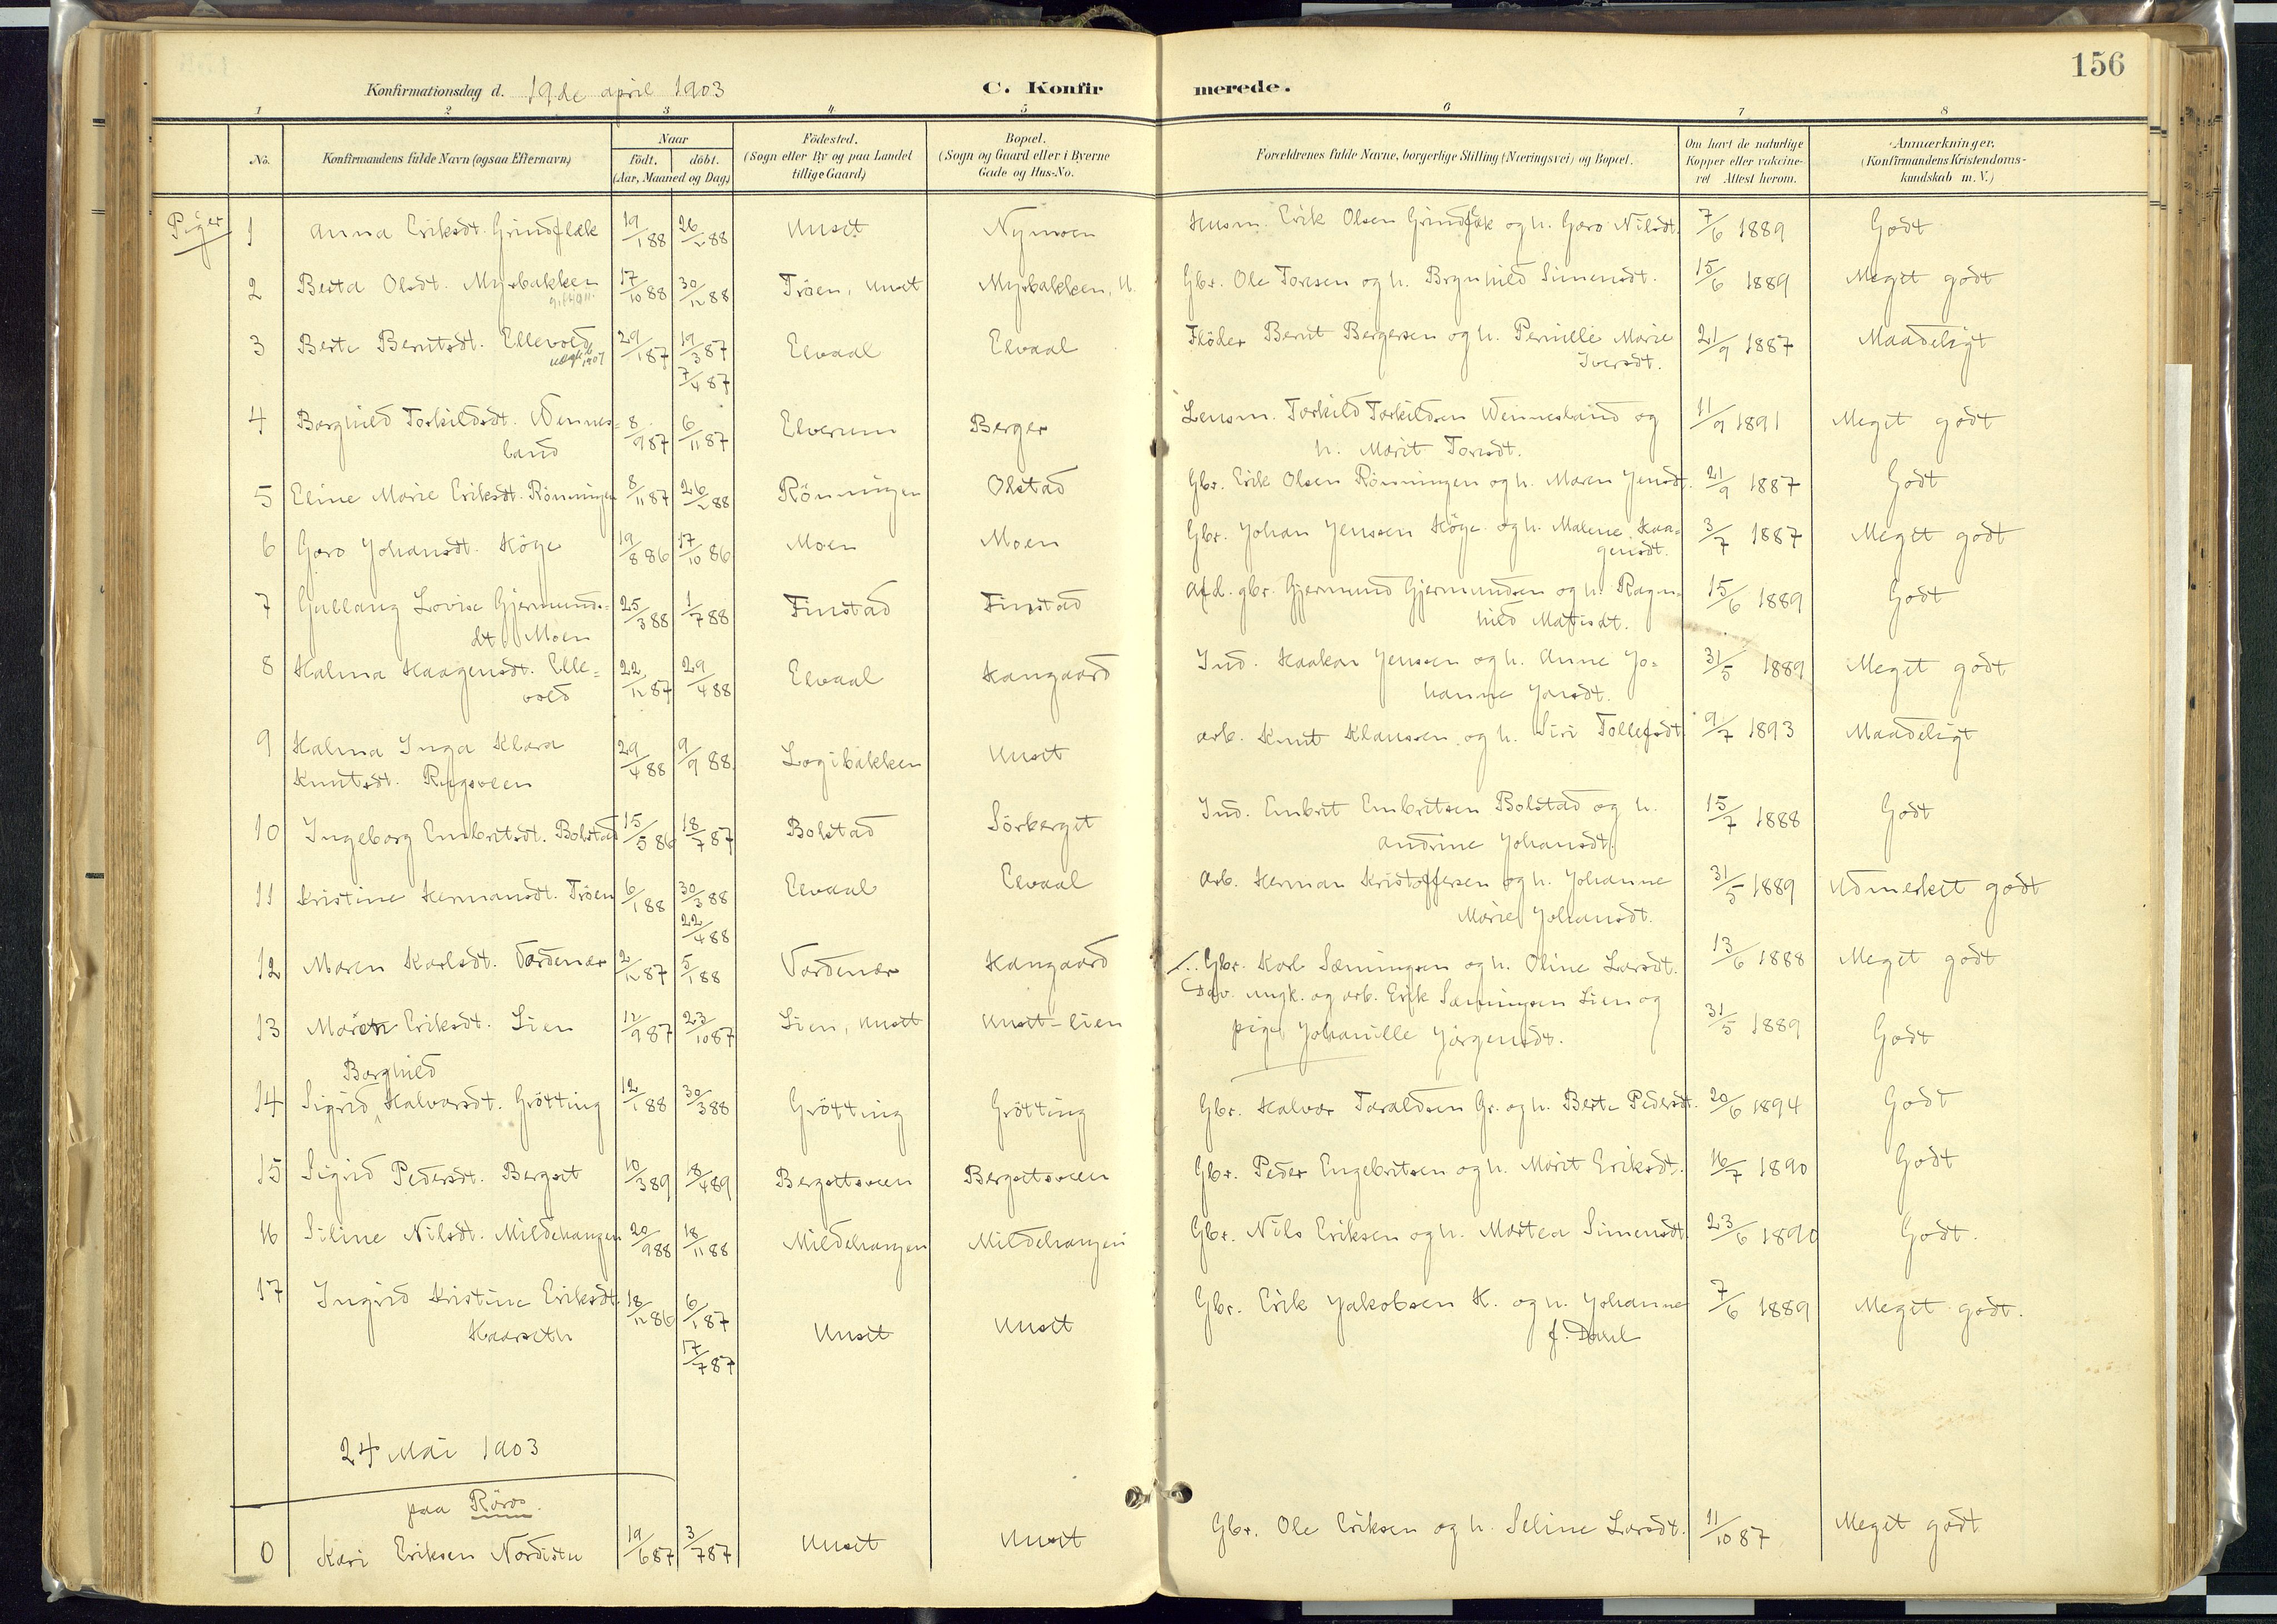 156
Konfirmationsdag d. 19de april 1903 C. Konfirmerede.
1 2 3 4 5 6 7 8
No. Konfirmandens fulde Navn (ogsaa Efternavn) Naar födt. döbt. (Aar, Maaned og Dag) Födested. (Sogn eller By og paa Landet tillige Gaard) Bopæl. (Sogn og Gaard eller i Byerne Gade og Hus-No. Forældrenes fulde Navne, borgerlige Stilling (Næringsvei) og Bopæl. Om havt de naturlige Kopper eller vakcineret Attest herom. Anmærkninger. (Konfirmandens Kristendomskundskab m. V.)
Piger
1 Anna Eriksdt. Grindflæk 19/1 88 26/2 88 Unset Nymoen Husm. Erik Olsen Grindflæk og h. Goro Nilsdt. 7/6 1889 Godt
2 Berta Olsdt. Myrbakken 17/10 88 30/12 88 Tröen, Unset Myrbakken, U. Gbr. Ole Toresen og h. Brynhild Simensdt. 15/6 1889 Meget godt
3 Berte Berntsdt. Ellevold 29/1 87 19/3 87 Elvaal Elvaal Flöder Bernt Bergersen og h. Pernille Marie 21/9 1887 Maadeligt
7/4 87 Iversdt.
4 Borghild Torkildsdt. Wennes- 8/9 87 6/11 87 Elverum Berger Lensm. Torkild Torkildsen Wennesland og 11/9 1891 Meget godt
land h. Marit Toresdt.
5 Eline Marie Eriksdt. Rönningen 8/11 87 26/2 88 Rönningen Olstad Gbr. Erik Olsen Rönningen og h. Maren Jensdt. 21/9 1887 Godt
6 Goro Johansdt. Höge 19/8 86 17/10 86 Moen Moen Gbr. Johan Jenssen Höge og h. Malene Haa- 3/7 1887 Meget godt
gensdt.
7 Gullaug Lovise Gjermunds- 25/3 88 1/7 88 Finstad Finstad Afd. gbr. Gjermund Gjermundsen og h. Ragn- 15/6 1889 Godt
dt. Moen hild Matisdt.
8 Halma Haagensdt. Elle- 22/12 87 29/4 88 Elvaal Haugaard Ind. Haakon Jenssen og h. Anne Jo- 31/5 1889 Meget godt
vold hanne Jonsdt.
9 Halma Inga Klara 29/4 88 9/9 88 Logibakken Unset Arb. Knut Klaussen og h. Siri Tollefsdt. 9/7 1893 Maadeligt
Knutsdt. Rugsveen
10 Ingeborg Embretsdt. Bolstad 15/5 86 18/7 87 Bolstad Sörberget Ind. Embret Embretsen Bolstad og h. 15/7 1888 Godt
Andrine Johansdt.
11 Kristine Hermansdt. Tröen 6/1 88 30/3 88 Elvaal Elvaal Arb. Herman Kristoffersen og h. Johanne 31/5 1889 Udmerket godt
22/4 88 Marie Johansdt.
12 Maren Karlsdt. Vordenær 2/12 87 5/1 88 Vordenær Haugaard Gbr. Karl Sæmingsen og h. Oline Larsdt. 13/6 1888 Meget godt
13 Maren Eriksdt. Lien 12/9 87 23/10 87 Lien, Unset Unset-lien Dav. ungk. og arb. Erik Sæmingsen Lien og 31/5 1889 Godt
pige Johanille Jörgensdt.
Borghild
14 Sigrid Halvorsdt. Grötting 12/1 88 30/3 88 Grötting Grötting Gbr. Halvor Taraldsen Gr. og h. Berte Pedersdt. 20/6 1894 Godt
15 Sigrid Pedersdt. Bergset 10/3 89 18/4 89 Bergsetsveen Bergsetsveen Gbr. Peder Engebretsen og h. Marit Eriksdt. 16/7 1890 Godt
16 Siline Nilsdt. Mildehaugen 20/9 88 18/11 88 Mildehaugen Mildehaugen Gbr. Nils Eriksen og h. Martea Simensdt 23/6 1890 Godt.
17 Ingrid Kristine Eriksdt. 18/12 86 6/1 87 Unset Unset Gbr. Erik Jakobsen H. og h. Johanne 7/6 1889 Meget godt.
Haarseth 17/7 87
24 Mai 1903
paa Röros.
0 Kari Eriksen Nordistu 19/6 87 3/7 87 Unset Unset Gbr. Ole Eriksen og h. Seline Larsdt. 11/10 87 Meget godt